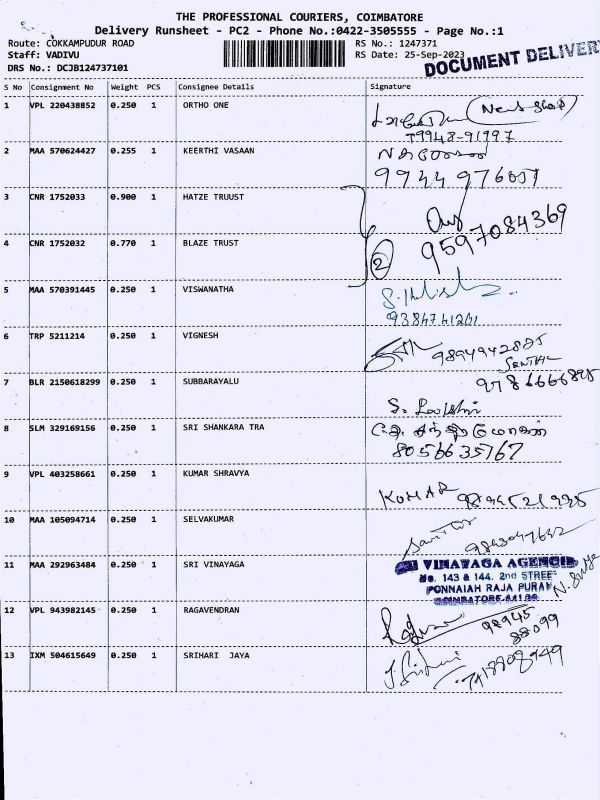 THE PROFESSIONAL COURIERS, COIMBATORE
Delivery Runsheet - PC2 - Phone No.:0422-3505555 - Page No.:1
Route: COKKAMPUDUR ROAD RS No.: 1247371
Staff: VADIVU RS Date: 25-Sep-2023
DRS No.: DCJB124737101
DOCUMENT DELIVERY
S No Consignment No Weight PCS Consignee Details Signature
1 VPL 220438852 0.250 1 ORTHO ONE
2 MAA 570624427 0.255 1 KEERTHI VASAAN
3 CNR 1752033 0.900 1 HATZE TRUUST
4 CNR 1752032 0.770 1 BLAZE TRUST 2 9597084369
5 MAA 570391445 0.250 1 VISWANATHA
6 TRP 5211214 0.250 1 VIGNESH
7 BLR 2150618299 0.250 1 SUBBARAYALU
8 SLM 329169156 0.250 1 SRI SHANKARA TRA
8056635767
9 VPL 403258661 0.250 1 KUMAR SHRAVYA KUMAR
10 MAA 105094714 0.250 1 SELVAKUMAR
11 MAA 292963484 0.250 1 SRI VINAYAGA VINAYAGA AGENCIE
No. 143 & 144. 2nd STREE
PONNAIAH RAJA PURAM
COIMBATORE
12 VPL 943982145 0.250 1 RAGAVENDRAN 98945
88099
13 IXM 504615649 0.250 1 SRIHARI JAYA